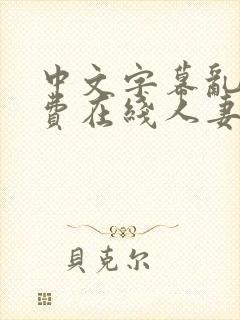 中文字幕亂
費在綫人妻
貝克尔